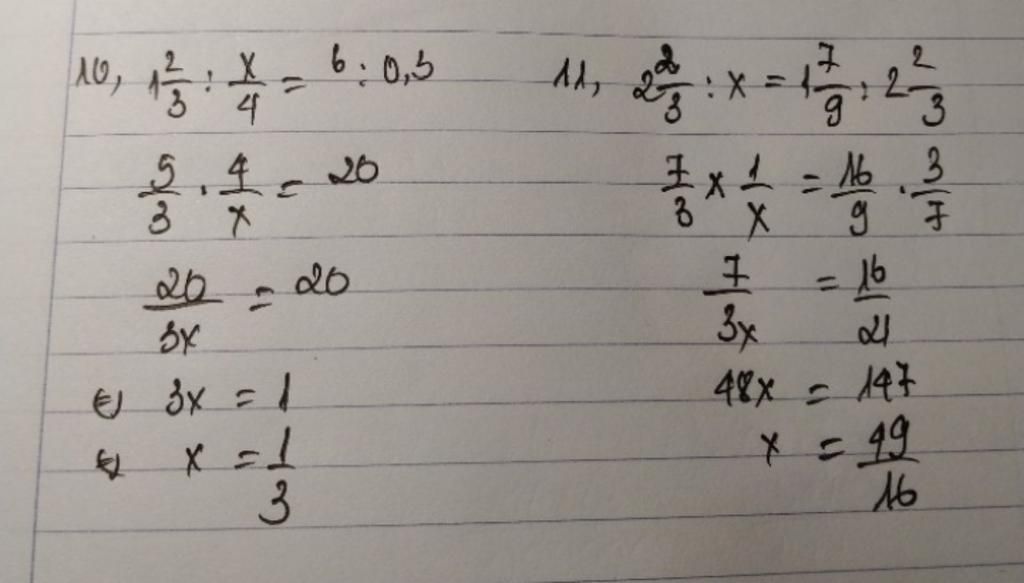 10, 1 2/3 : x/4 = 6 : 0,3
5/3 . 4/x = 20
20/3x = 20
3x = 1
x = 1/3
11, 2 2/3 : x = 1 7/9 : 2 2/3
7/3 x 1/x = 16/9 . 3/7
7/3x = 16/21
48x = 147
x = 49/16